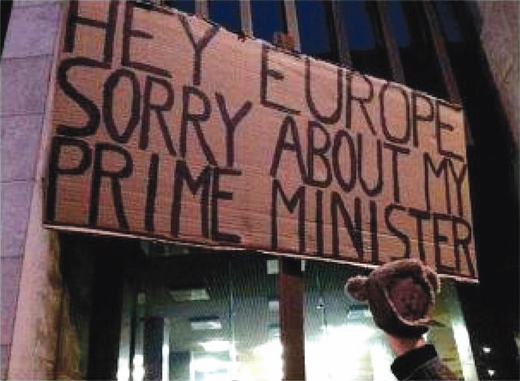 HEY EUROPE,
SORRY ABOUT MY
PRIME MINISTER